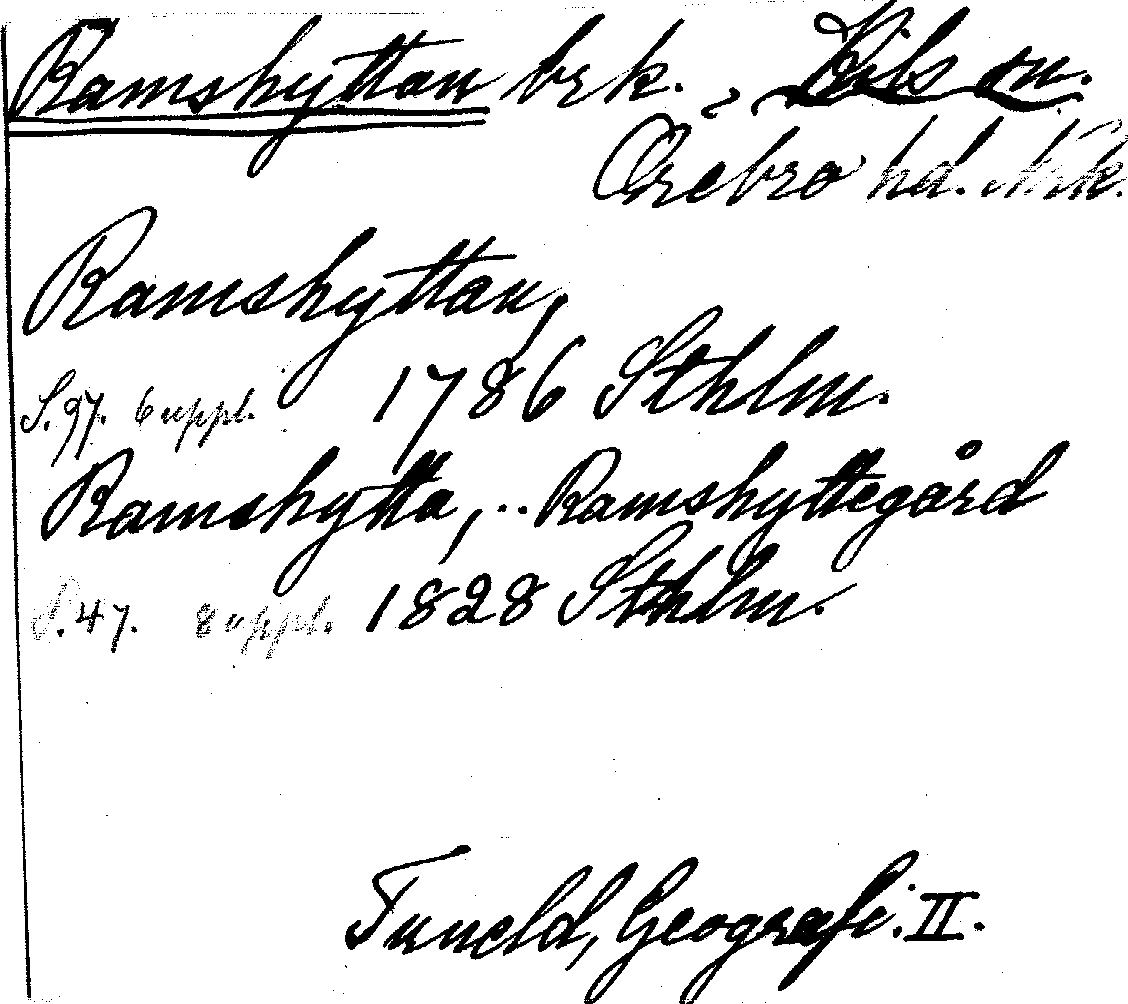 Ramshyttan brk., Kils sn.
Örebro hd. Nrk.
Ramshyttan,
S. 97. 6 uppl. 1786 Sthlm.
Ramshytta, .. Ramshyttegård
S. 47. 8 uppl. 1828 Sthlm.
Tuneld, Geografi. II.